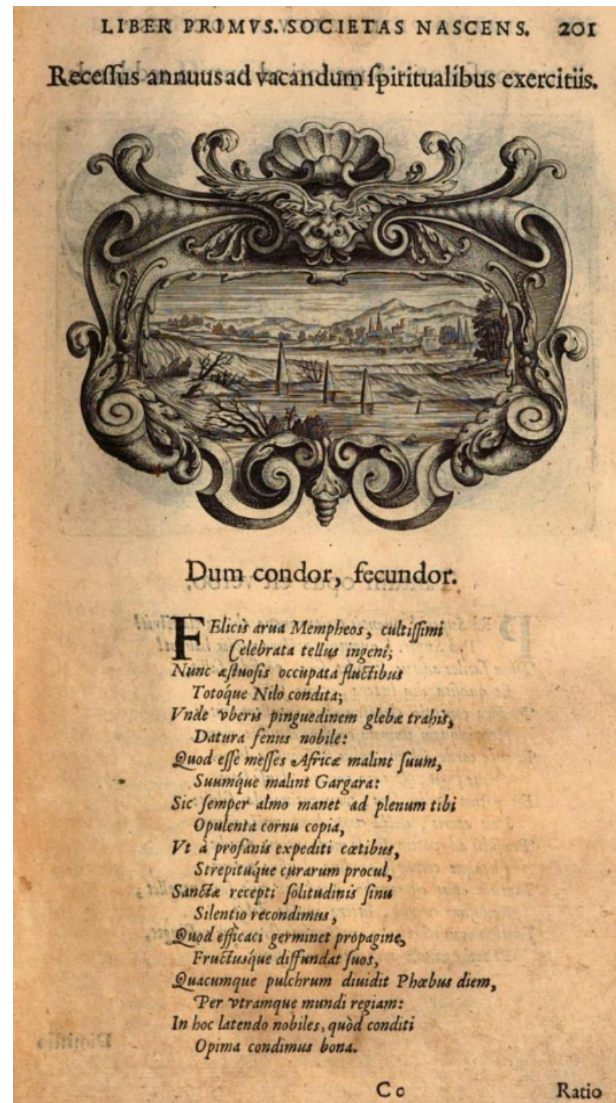 LIBER PRIMVS. SOCIETAS NASCENS. 201
Receſſus annuus ad vacandum ſpiritualibus exercitiis.
Dum condor, fecundor.
FElicis arua Mempheos, cultiſſimi
Celebrata tellus ingeni;
Nunc æſtuoſis occupata fluctibus
Totoque Nilo condita;
Vnde vberis pinguedinem glebæ trahis,
Datura fenus nobile:
Quod eſſe meſſes Africæ malint ſuum,
Suumque malint Gargara:
Sic ſemper almo manet ad plenum tibi
Opulenta cornu copia,
Vt à profanis expediti cœtibus,
Strepituque curarum procul,
Sanctæ recepti ſolitudinis ſinu
Silentio recondimus,
Quod efficaci germinet propagine,
Fructuſque diffundat ſuos,
Quacumque pulchrum diuidit Phœbus diem,
Per vtramque mundi regiam:
In hoc latendo nobiles, quòd conditi
Opima condimus bona.
Cc Ratio